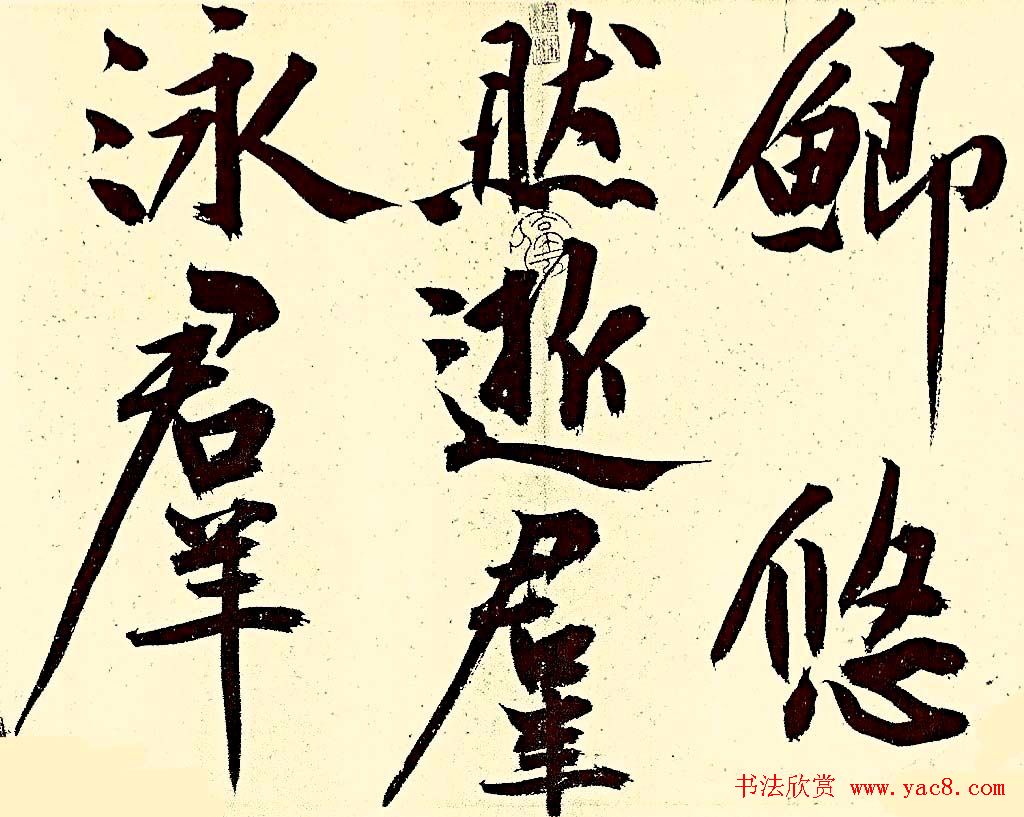 鯽悠
然逝羣
泳羣
书法欣赏 www.yac8.com